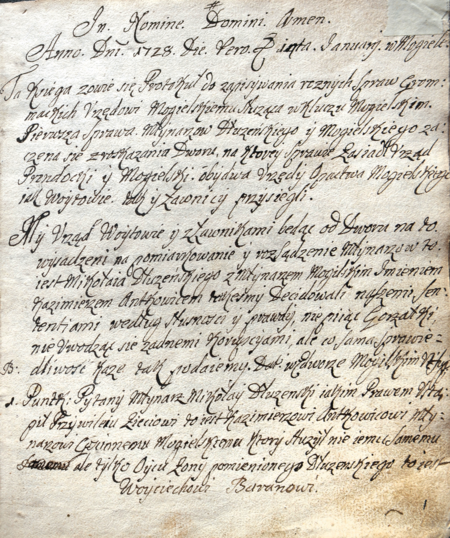 In Nomine Domini Amen.
Anno Dni. 1728. Die Vero January. w Mogiele
Ta Księga zowie się Protokuł do zapisywania roznych Spraw Grom=
mackich Vrzędowi Mogielskiemu służąca w Kluczu Mogielskim.
Pierwsza Sprawa. Młynarzow Dłuzenskiego y Mogielskiego za=
czena się z rozkazania Dworu, na ktorey sprawie zasiadł Vrząd
Prandocki y Mogielski. obydwa Vrzędy Opactwa Mogielskiego
iak Woytowie. tak y Ławnicy przysięgli.
My Vrząd Woytowie z Ławnikami będąc od Dworu na to
wysadzeni na pomiarkowanie y rozsądzenie Młynarzow to
iest Mikołaia Dłuzenskiego z Młynarzem Mogilskim Imieniem
Kazimierzem Antkowicem Decidowali Sen=
tentiami według słusnosci y prawdy, nie piiąc Gorzałki
nie Vwodząc się zadnemi Korupcyami, ale co sama sprawie=
dliwość kaze tak Dał. w Dworze Mogilskim
1. Punkt: Pytany Młynarz Mikołay Dłuzenski iakim Prawem Vstą=
pił Przywileiu Zięciowi to iest Kazimierzowi Antkowicowi Mły=
narzowi Mogielskiemu Ktory służył nie iemu samemu
ale tylko Oycu Zony pomienionego Dłuzenskiego to iest
Woyciechowi Baranowi.